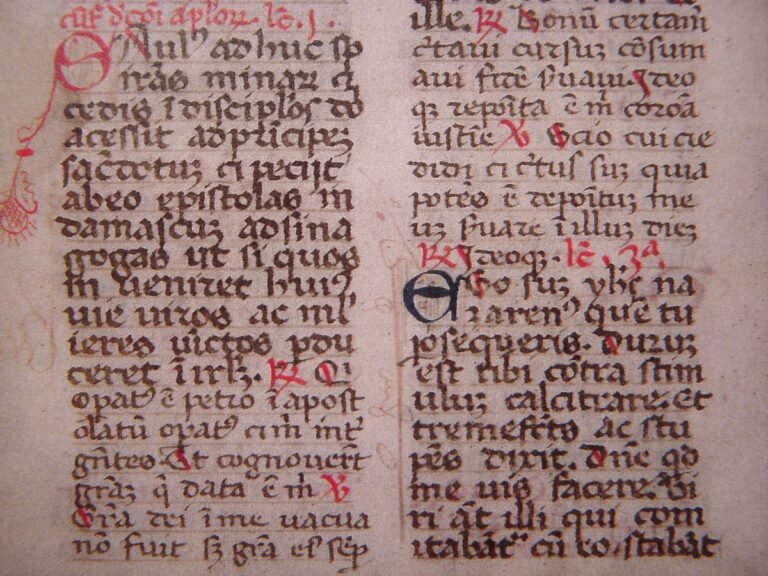 Saulꝰ adhuc sp
irās minaꝝ et
cedis ī discip̄los do
acessit ad p̄ncipez
sac̄dotuz et peciit
ab eo epistolas in
damascuz ad sina
gogas ut si quos
in ueniret huiꝰ
uie uiros ac mu̅l
ieres uīctos pdu
ceret ī irl̄z. R̄ Qi
opatꝰ ē petro ī apost
olatū opatꝰ ē et m̄ int̄
gn̄tes. Et cognouer̄t
gr̄az q̄ data ē m̄ V̄
Gr̄a dei ī me uacua
nō fuit sz gr̄a eiꝰ semp̄
ille. R̄ Bonū certam̄
c̄taui cursuz cōsum
aui fidē s̄uaui. Ideo
qz reposita ē m̄ coroā
iustie V̄ Scio cui cre
didi et c̄tus suz quia
potēs ē depositū me
uz s̄uare ī illuz diez
R̄ Ideoqz. lc̄. 3ª.
Ego suz yhc̄ na
zarenꝰ quē tu
psequeris. Duruz
est tibi cōtra stim
uluz calcitrare. Et
tremefc̄us ac stu
pēs dixit. Dn̄e qd
me uis facere. Vi
ri āt illi qui com
itabāt᷑ cū eo. stabāt